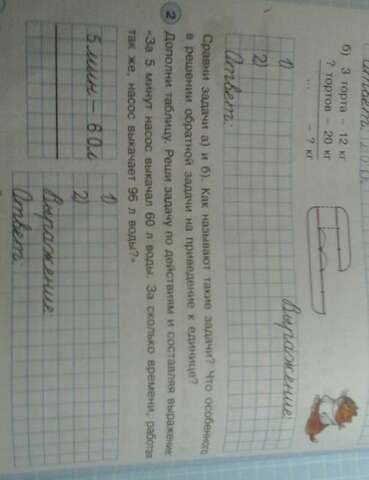 Ответ:
б) 3 торта – 12 кг
? тортов – 20 кг
... – ? кг
Выражение:
1)
2)
Ответ:
Сравни задачи а) и б). Как называют такие задачи? Что особенного
в решении обратной задачи на приведение к единице?
2 Дополни таблицу. Реши задачу по действиям и составляя выражение:
«За 5 минут насос выкачал 60 л воды. За сколько времени, работая
так же, насос выкачает 96 л воды?»
5 мин – 60 л
1)
2)
Выражение:
Ответ: